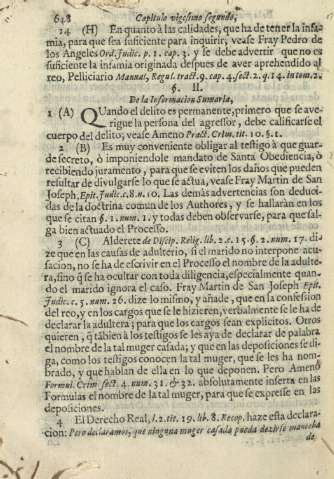 648 Capitulo vigesimo segundo,
14 (H) En quanto à las calidades, que ha de tener la infa-
mia, para que sea suficiente para inquirir, vease Fray Pedro de
los Angeles Ord. Judic. p. 1. cap. 3. y se debe advertir que no es
suficiente la infamia originada despues de aver aprehendido al
reo, Pelliciario Manual, Regul. tract. 9. cap. 4. sect. 2. q. 14. in tom. 2.
§. II.
De la Informacion Sumaria,
1 (A) QUando el delito es permanente, primero que se ave-
rigue la persona del agressor, debe calificarse el
cuerpo del delito, vease Ameno Pract. Crim. tit. 10. §. 1.
2 (B) Es muy conveniente obligar al testigo à que guar-
de secreto, ò imponiendole mandato de Santa Obediencia, ò
recibiendo juramento, para que se eviten los daños que pueden
resultar de divulgarse lo que se actua, vease Fray Martin de San
Joseph, Epit. Judic. c. 8. n. 10. Las demàs advertencias son deduci-
das de la doctrina comun de los Authores, y se hallaràn en los
que se citan §. 2. num. 1. y todas deben observarse, para que sal-
ga bien actuado el Processo.
3 (C) Alderete de Discip. Relig. lib. 2. c. 15. §. 2. num. 17. di-
ze que en las causas de adulterio, si el marido no interpone acu-
sacion, no se ha de escrivir en el Processo el nombre de la adulte-
ra, sino q̃ se ha ocultar con toda diligencia, especialmente quan-
do el marido ignora el caso. Fray Martin de San Joseph Epit.
Judic. c. 5. num. 26. dize lo mismo, y añade, que en la confession
del reo, y en los cargos que se le hizieren, verbalmente se le ha de
declarar la adultera; para que los cargos sean explicitos. Otros
quieren, q̃ tãbien à los testigos se les aya de declarar de palabra
el nombre de la tal muger casada; y que en las deposiciones se di-
ga, como los testigos conocen la tal muger, que se les ha nom-
brado, y que hablan de ella en lo que deponen. Pero Ameno
Formul. Crim sect. 4. num. 31. & 32. absolutamente inserta en las
Formulas el nombre de la tal muger, para que se expresse en las
deposiciones.
4 El Derecho Real, l. 2. tit. 19. lib. 8. Recop. haze esta declara-
cion: Pero declaramos, que ninguna muger casada pueda dezirse manceba
de